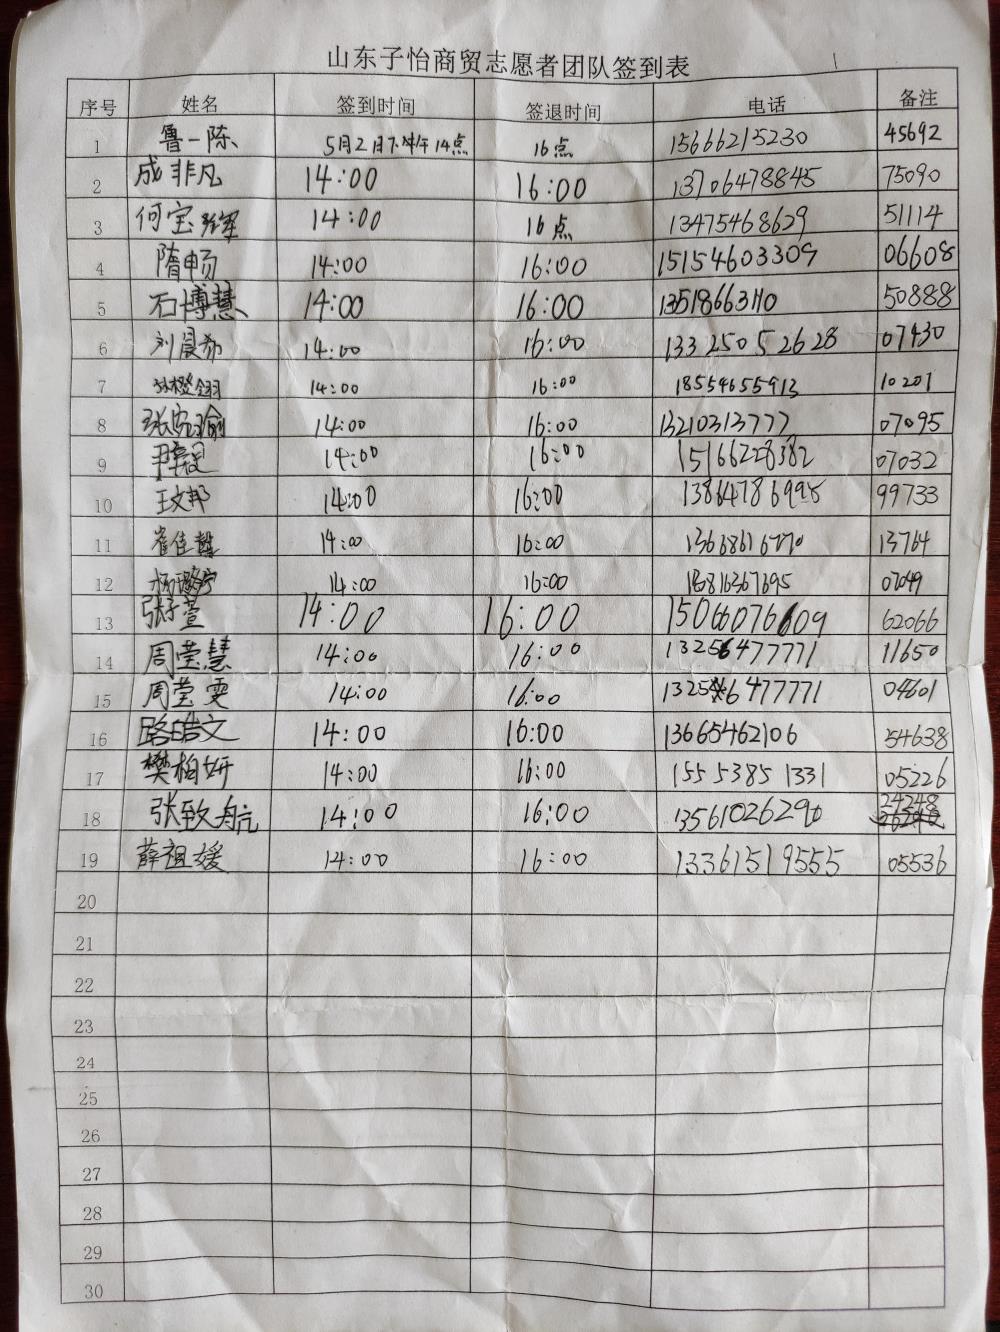 山东子怡商贸志愿者团队签到表
序号 姓名 签到时间 签退时间 电话 备注
1 鲁一陈 5月2日下午14点 16点 15666215230 45692
2 成非凡 14:00 16:00 13706478845 75090
3 何宝 14:00 16点 13475468629 51114
4 隋畅 14:00 16:00 15154603309 06608
5 石博慧 14:00 16:00 13518663110 50888
6 刘晨 14:00 16:00 13325052628 07430
7 14:00 16:00 18554655913 10207
8 张 瑜 14:00 16:00 13210313777 07095
9 14:00 16:00 15166228382 07032
10 王文邦 14:00 16:00 13864786995 99733
11 崔佳 14:00 16:00 13668616770 13764
12 杨璐宁 14:00 16:00 07049
13 张子萱 14:00 16:00 15066076609 62066
14 周莹慧 14:00 16:00 13256477771 11650
15 周莹雯 14:00 16:00 13256477771 04601
16 路皓文 14:00 16:00 13665462106 54638
17 樊柏妍 14:00 16:00 155 5385 1331 05226
18 张致航 14:00 16:00 13561026290 24248
19 薛祖媛 14:00 16:00 13361519555 05536
20
21
22
23
24
25
26
27
28
29
30